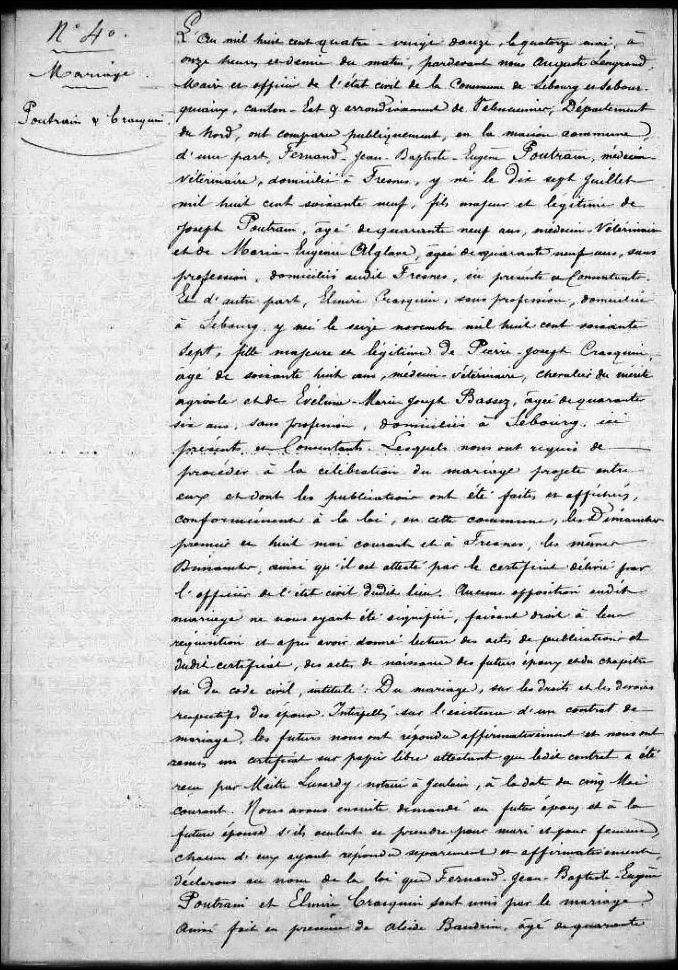 N° 40.
Mariage
Poutrain & Crasquin
L'An mil huit cent quatre-vingt douze, le quatorze mai, à
onze heures et demie du matin, pardevant nous Auguste Lengrand,
Maire et officier de l'état civil de la Commune de Sebourg et Sebour-
quiaux, canton-Est & arrondissement de Valenciennes, Département
du Nord, ont comparu publiquement, en la maison commune,
d'une part, Fernand-Jean-Baptiste-Eugène Poutrain, médecin-
vétérinaire, domicilié à Fresnes, y né le dix sept Juillet
mil huit cent soixante neuf, fils majeur et légitime de
Joseph Poutrain, âgé de quarante neuf ans, médecin-vétérinaire
et de Marie-Eugénie Alglave, âgée de quarante neuf ans, sans
profession, domiciliés audit Fresnes, ici présents et Consentants.
Et d'autre part, Elmire Crasquin, sans profession, domiciliée
à Sebourg, y née le seize novembre mil huit cent soixante
sept, fille majeure et légitime de Pierre-Joseph Crasquin,
âgé de soixante huit ans, médecin-vétérinaire, chevalier du mérite
agricole et de Evéline-Marie-Joseph Bassez, âgée de quarante
six ans, sans profession, domiciliés à Sebourg, ici
présents et Consentants. Lesquels nous ont requis de
procéder à la célébration du mariage projeté entre
eux et dont les publications ont été faites et affichées,
conformément à la loi, en cette commune, les Dimanches
premier et huit mai courant et à Fresnes, les mêmes
Dimanches, ainsi qu'il est attesté par le certificat délivré par
l'officier de l'état civil dudit lieu. Aucune opposition audit
mariage ne nous ayant été signifiée, faisant droit à leur
réquisition et après avoir donné lecture des actes de publications et
dudit certificat, des actes de naissance des futurs époux et du chapitre
six du code civil, intitulé: Du mariage, sur les droits et les devoirs
respectifs des époux. Interpellés sur l'existence d'un contrat de
mariage, les futurs nous ont répondu affirmativement et nous ont
remis un certificat sur papier libre attestant que ledit contrat a été
reçu par Maître notaire à Jenlain, à la date du cinq Mai
courant. Nous avons ensuite demandé au futur époux et à la
future épouse s'ils veulent se prendre pour mari et pour femme,
chacun d'eux ayant répondu séparément et affirmativement,
déclarons au nom de la loi que Fernand-Jean-Baptiste-Eugène
Poutrain et Elmire Crasquin sont unis par le mariage.
Ainsi fait en présence de Alcide Baudrin, âgé de quarante